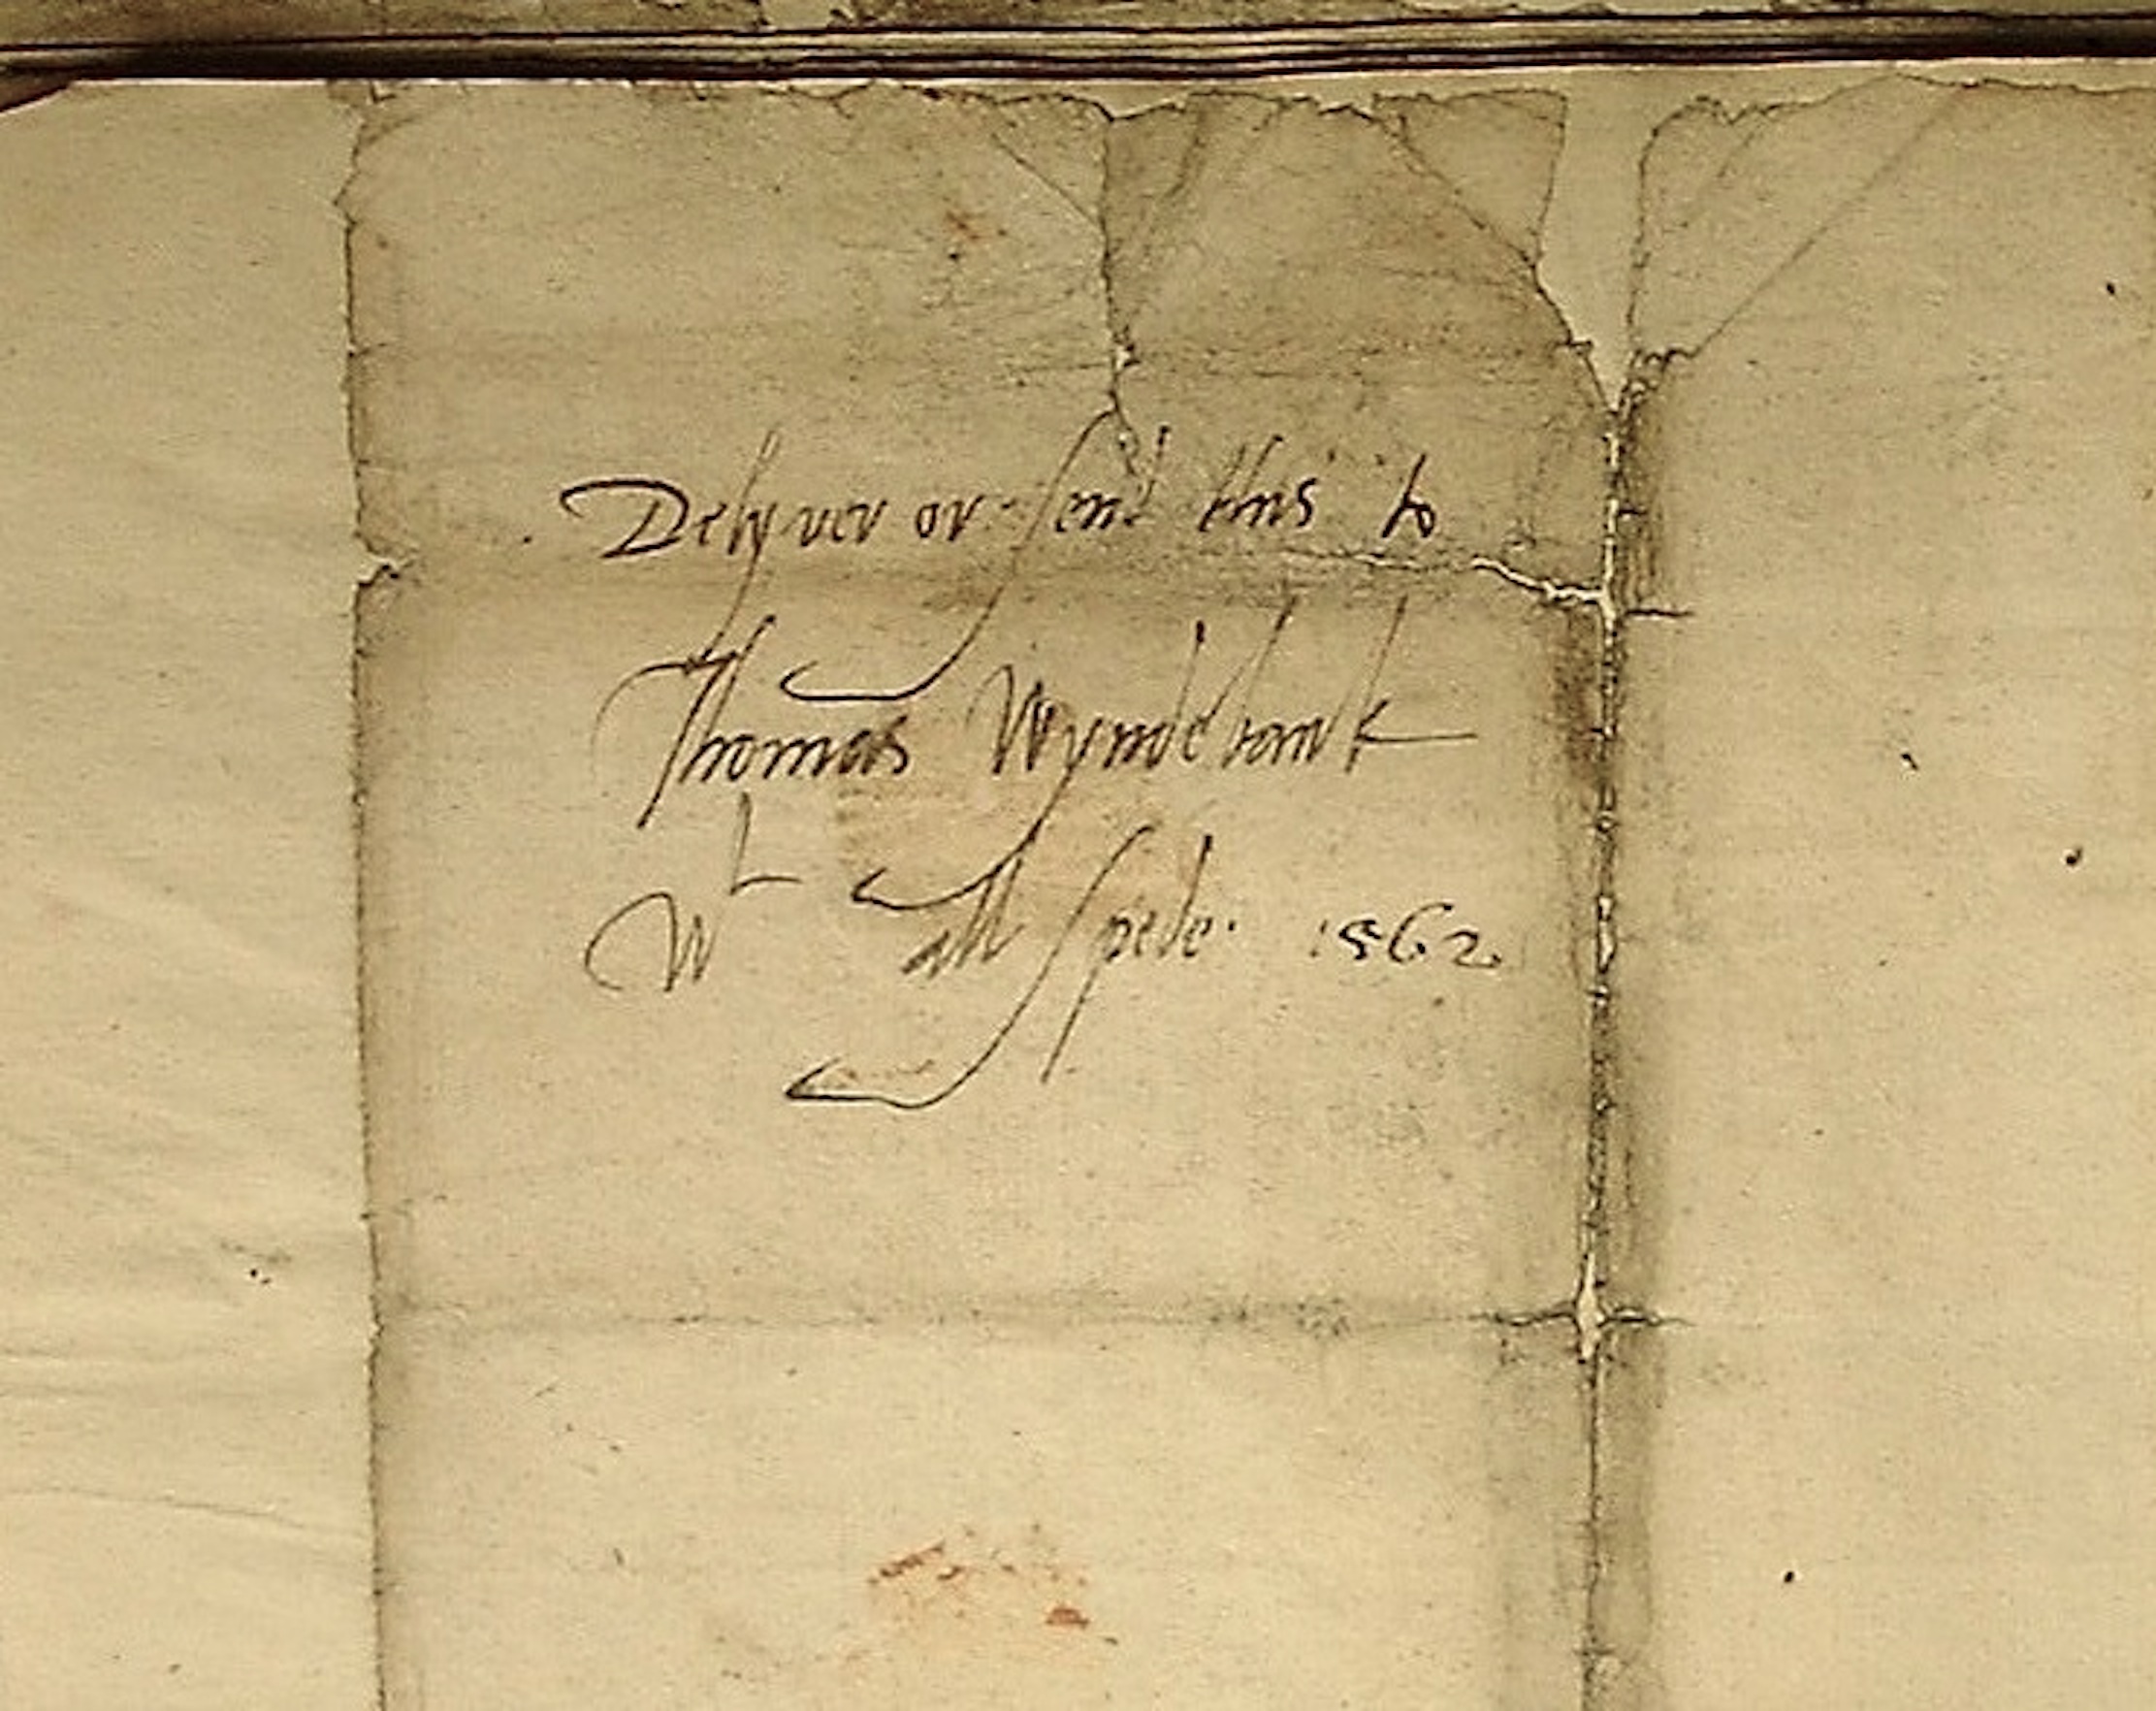 Delyver or send this to
Thomas Wyndebank
Wt all spede. 1562